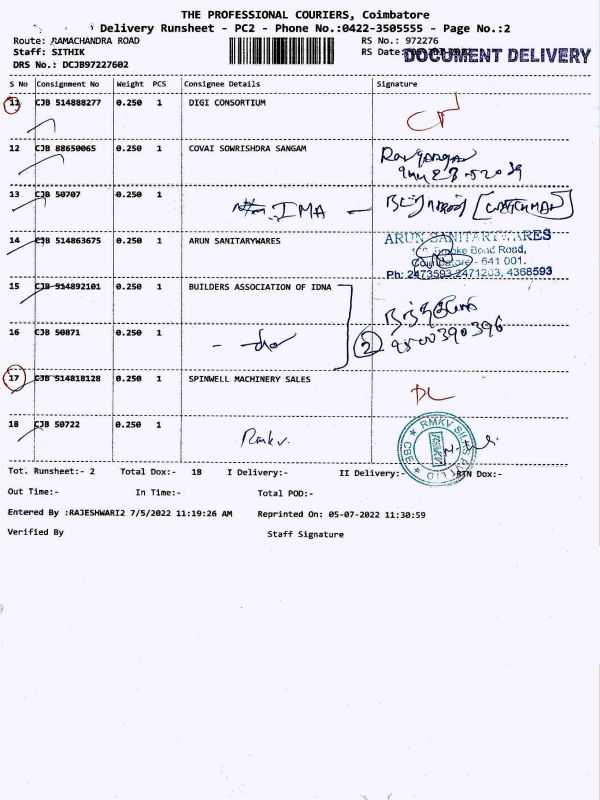 THE PROFESSIONAL COURIERS, Coimbatore
Delivery Runsheet - PC2 - Phone No.:0422-3505555 - Page No.:2
Route: RAMACHANDRA ROAD RS No.: 972276
Staff: SITHIK RS Date: DOCUMENT DELIVERY
DRS No.: DCJB97227602
S No Consignment No Weight PCS Consignee Details Signature
11 CJB 514888277 0.250 1 DIGI CONSORTIUM
12 CJB 88650065 0.250 1 COVAI SOWRISHDRA SANGAM
13 CJB 50707 0.250 1 IMA - [WATCHMAN]
14 CJB 514863675 0.250 1 ARUN SANITARYWARES ARUN SANITARYWARES
Brooke Bond Road,
Coimbatore - 641 001.
Ph: 2473593 2471203, 4368593
15 CJB 514892101 0.250 1 BUILDERS ASSOCIATION OF IDNA
16 CJB 50871 0.250 1 - do 2 9500390396
17 CJB 514818128 0.250 1 SPINWELL MACHINERY SALES DL
18 CJB 50722 0.250 1 Rmkv. RMKV SILKS CBE
Tot. Runsheet:- 2 Total Dox:- 18 I Delivery:- II Delivery:- RTN Dox:-
Out Time:- In Time:- Total POD:-
Entered By :RAJESHWARI2 7/5/2022 11:19:26 AM Reprinted On: 05-07-2022 11:30:59
Verified By Staff Signature